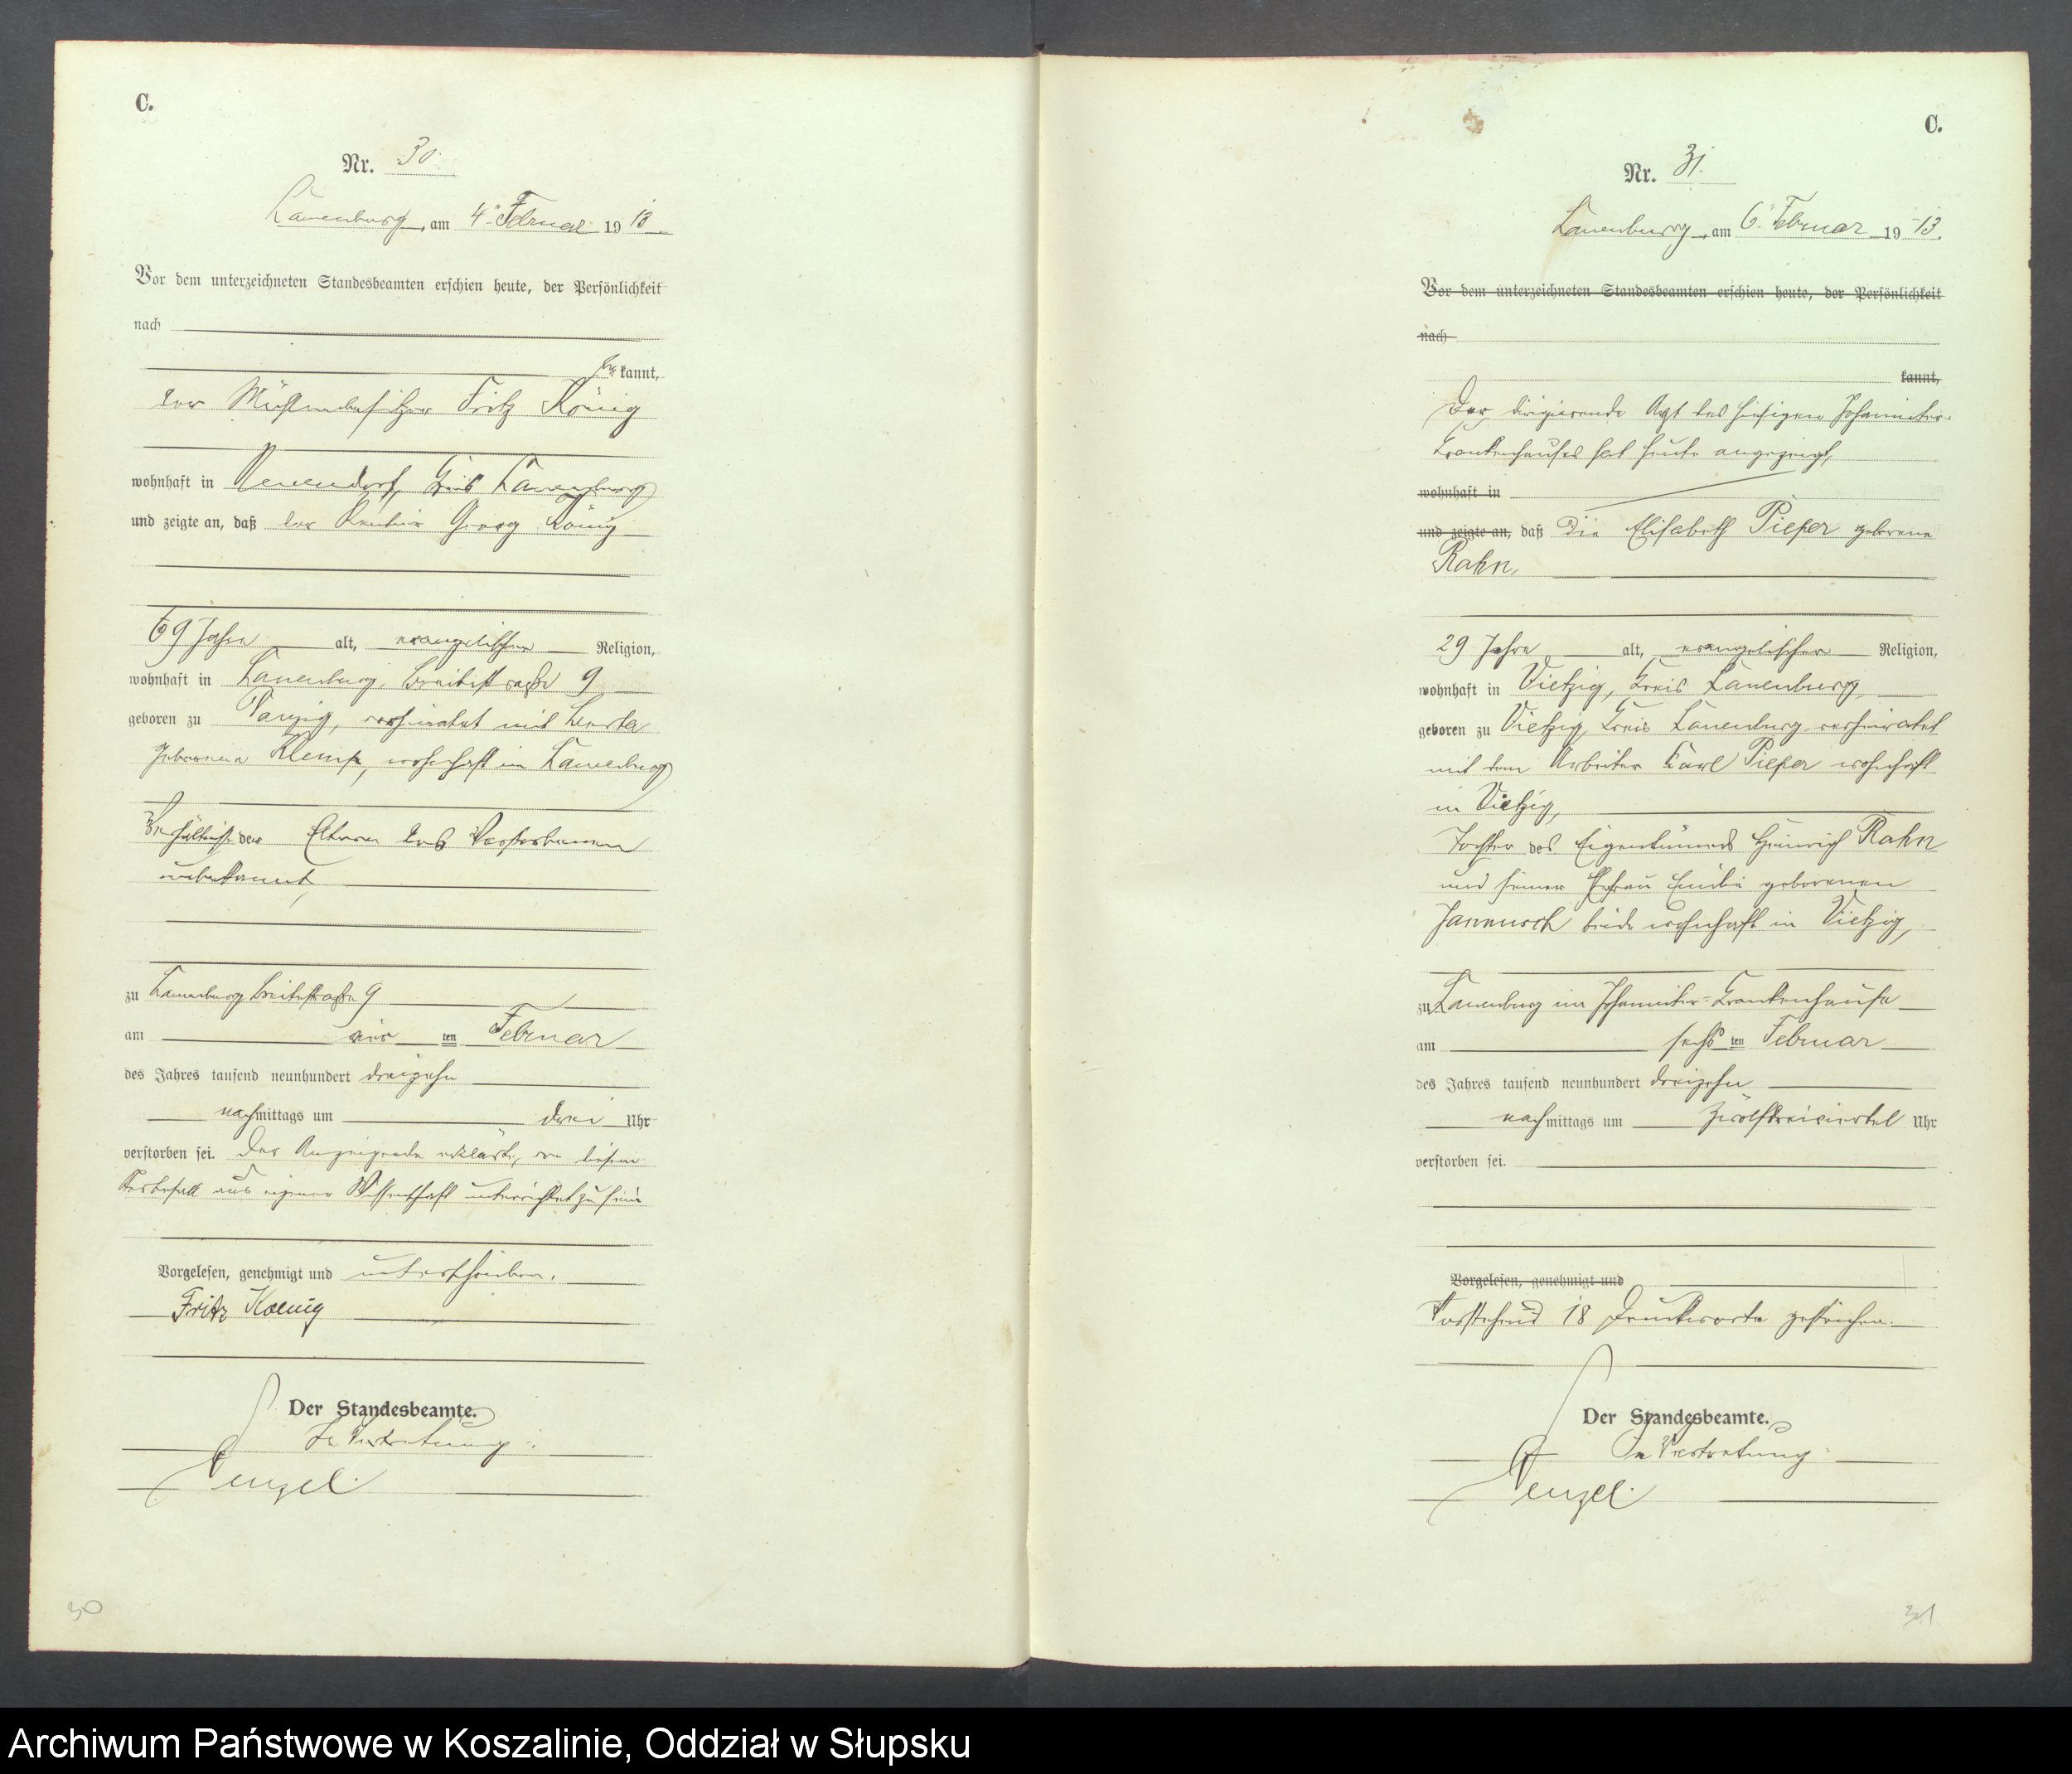 C.
Nr. 30.
Lauenburg, am 4. Februar 1913
Vor dem unterzeichneten Standesbeamten erschien heute, der Persönlichkeit
nach
be kannt,
der Mühlenbesitzer Fritz König
wohnhaft in Neuendorf, Kreis Lauenburg
und zeigte an, daß der Rentier Georg König
69 Jahre alt, evangelischer Religion,
wohnhaft in Lauenburg, Breitestraße 9
geboren zu Danzig, verheiratet mit
geborenen Klemp, wohnhaft in Lauenburg
der Eltern des Verstorbenen
unbekannt,
zu Lauenburg Breitestraße 9
am vier ten Februar
des Jahres tausend neunhundert dreizehn
nachmittags um drei Uhr
verstorben sei. Der Anzeigende erklärte, von diesem
Sterbefall aus eigener Wissenschaft unterrichtet zu sein
Vorgelesen, genehmigt und unterschrieben.
Fritz Koenig
Der Standesbeamte.
In Vertretung:
30
C.
Nr. 31.
Lauenburg, am 6. Februar 1913.
Vor dem unterzeichneten Standesbeamten erschien heute, der Persönlichkeit
nach
kannt,
Der dirigierende Arzt des hiesigen Johanniter-
Krankenhauses hat heute angezeigt,
wohnhaft in
und zeigte an, daß die Elisabeth Pieper geborene
Rahn,
29 Jahre alt, evangelischer Religion,
wohnhaft in Vietzig, Kreis Lauenburg,
geboren zu Vietzig, Kreis Lauenburg, verheiratet
mit dem Arbeiter Karl Pieper wohnhaft
in Vietzig,
Tochter des Eigentümers Heinrich Rahn
und seiner Ehefrau Emilie geborenen
Jannusch beide wohnhaft in Vietzig,
zu Lauenburg im Johanniter-Krankenhause
am sechs ten Februar
des Jahres tausend neunhundert dreizehn
nachmittags um zwölfdreiviertel Uhr
verstorben sei.
Vorgelesen, genehmigt und
Vorstehend 18 Druckworte gestrichen.
Der Standesbeamte.
In Vertretung:
31
Archiwum Państwowe w Koszalinie, Oddział w Słupsku